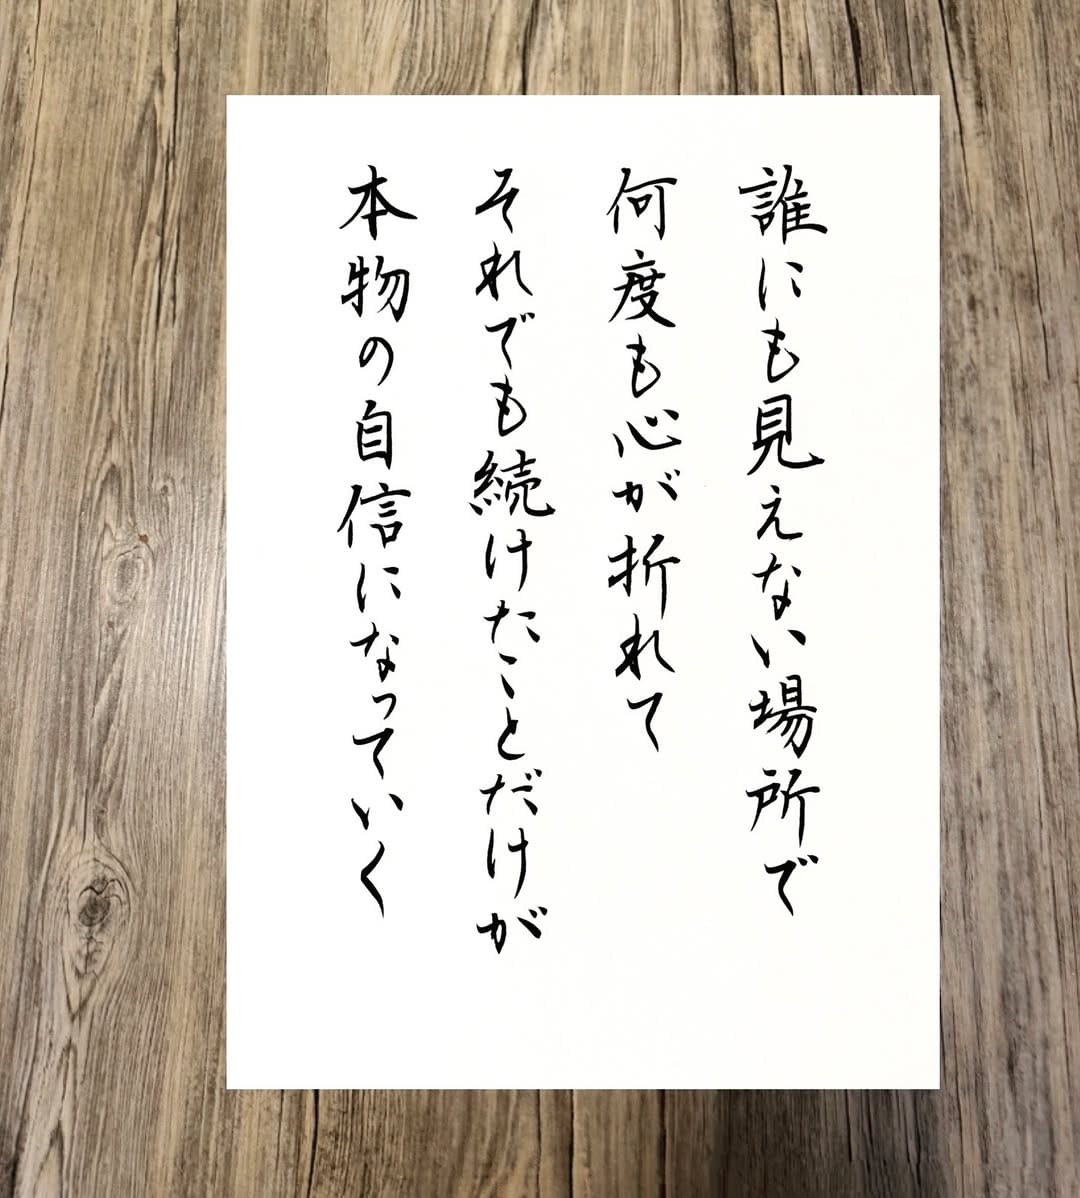 誰にも見えない場所で
何度も心が折れて
それでも続けたことだけが
本物の自信になっていく